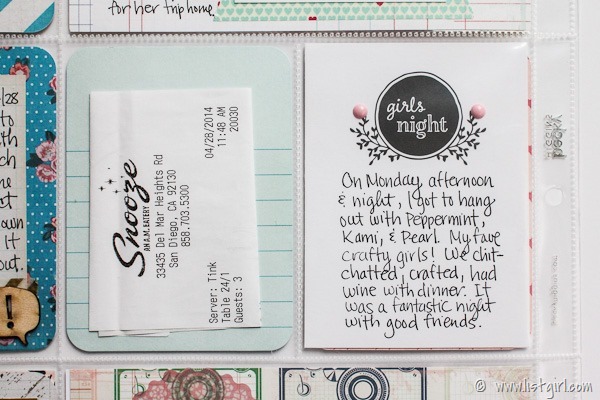 for her trip home.
/28
with
own
it
out.
!
Snooze
AN A.M. EATERY
33435 Del Mar Heights Rd
San Diego, CA 92130
858.703.5300
04/28/2014
11:48 AM
20030
Server: Tink
Table 24/1
Guests: 3
girls
night
On Monday afternoon
& night, I got to hang
out with Peppermint,
Kami, & Pearl. My fave
crafty girls! We chit-
chatted, crafted, had
wine with dinner. It
was a fantastic night
with good friends.
© www.listgirl.com